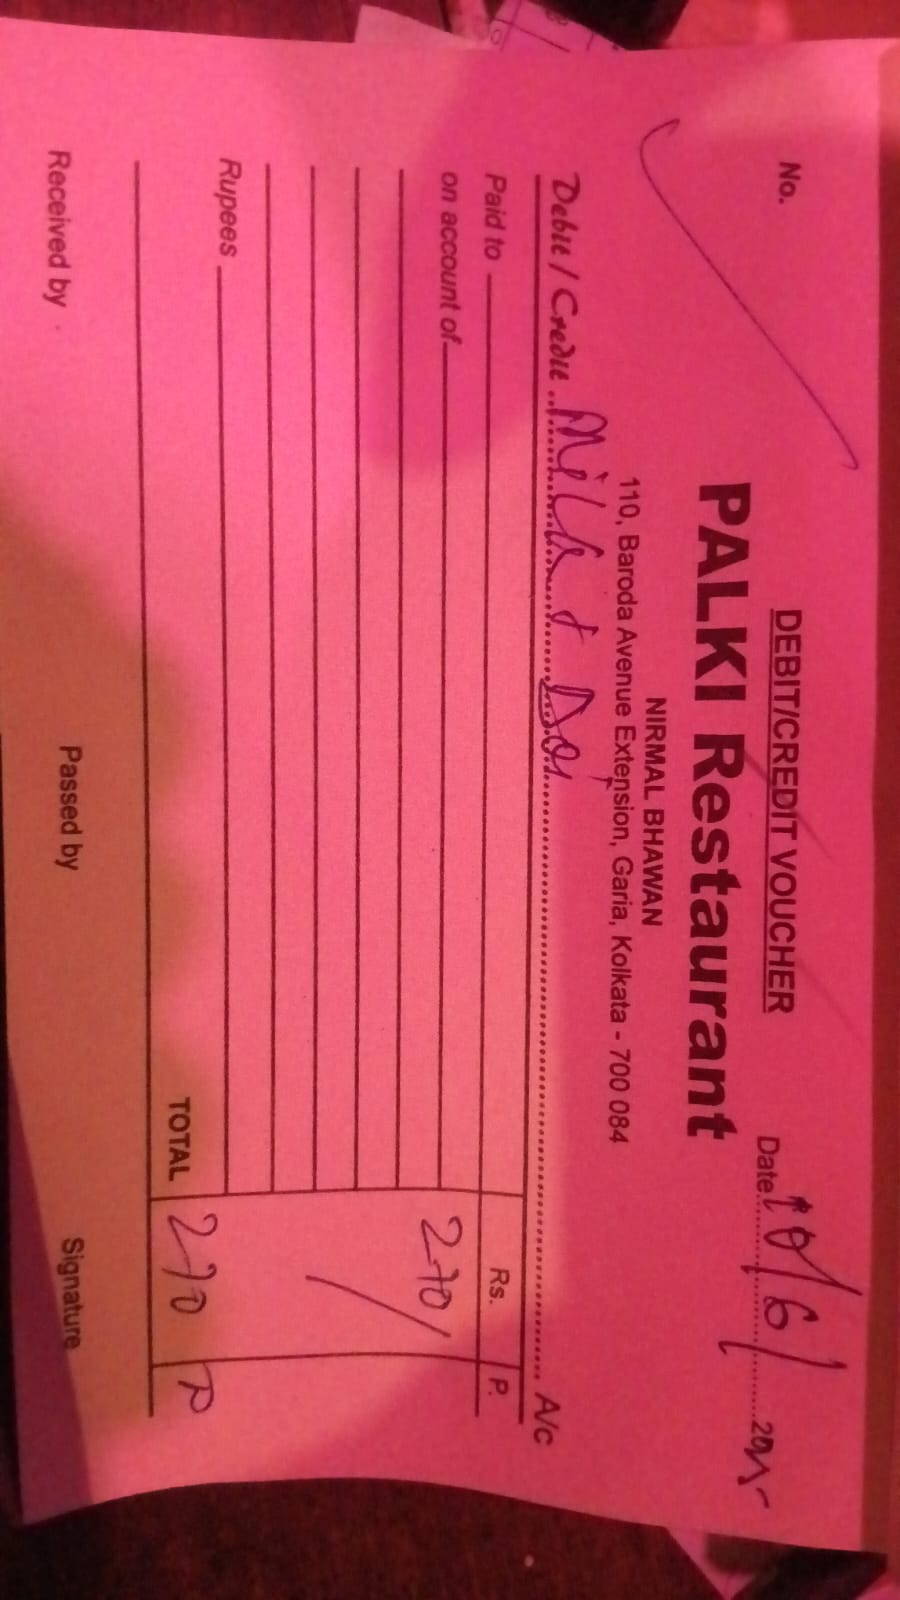 No.
DEBIT/CREDIT VOUCHER
Date 10/6/ 2025
PALKI Restaurant
NIRMAL BHAWAN
110, Baroda Avenue Extension, Garia, Kolkata - 700 084
Debit / Credit Milk + Doi A/c
Paid to Rs. P.
on account of 270/
Rupees
TOTAL 270
Received by Passed by Signature